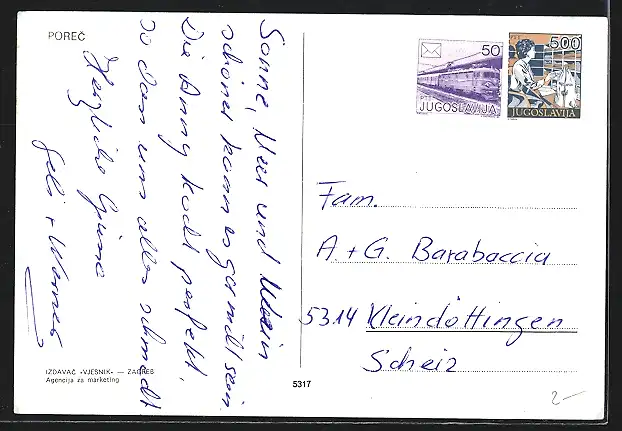 POREČ
Sonne, Meer und Wein
schöner kann es gar nicht sein
Die Anny kocht perfekt,
so dass uns alles schmeckt
Herzliche Grüsse
Geli + Werner
IZDAVAČ »VJESNIK« — ZAGREB
Agencija za marketing
5317
50
PTT
JUGOSLAVIJA
PTT 500
JUGOSLAVIJA
Fam.
A + G. Barabaccia
5314 Kleindöttingen
Scheiz
2-